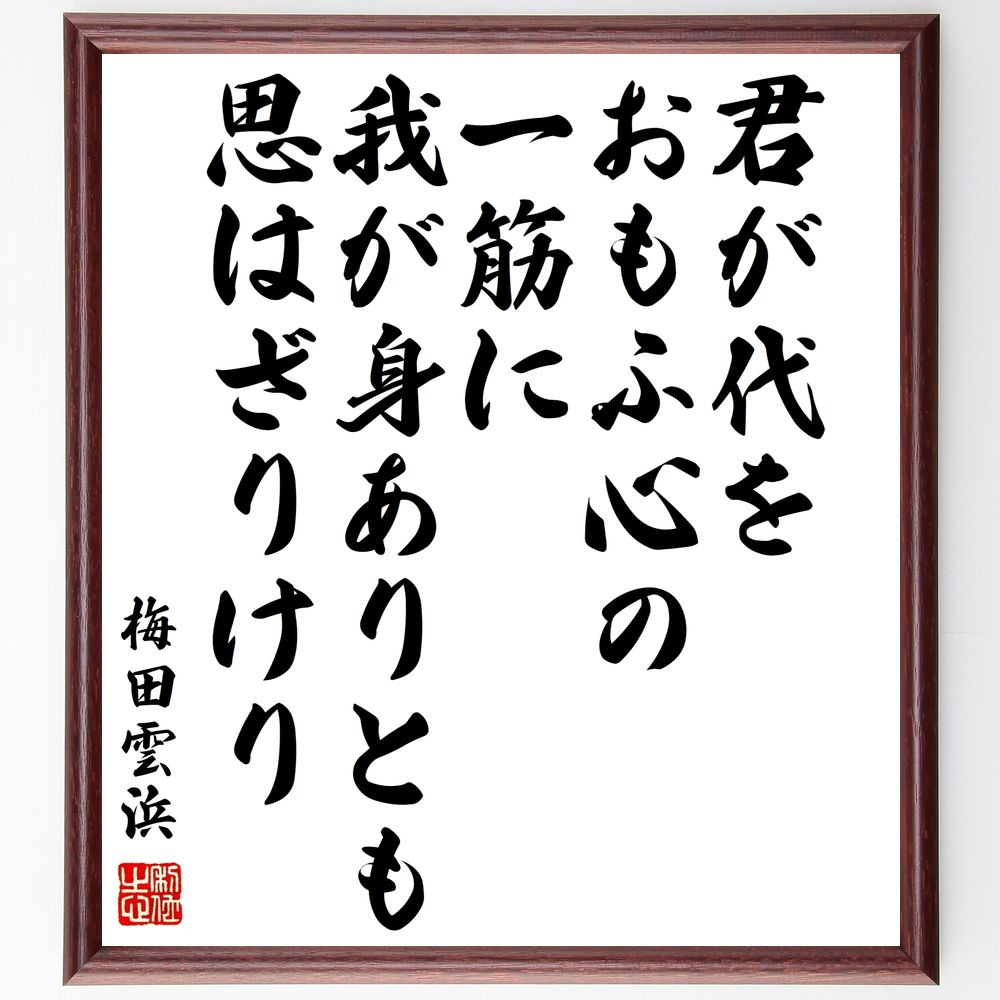 君が代を
おもふ心の
一筋に
我が身ありとも
思はざりけり
梅田雲浜